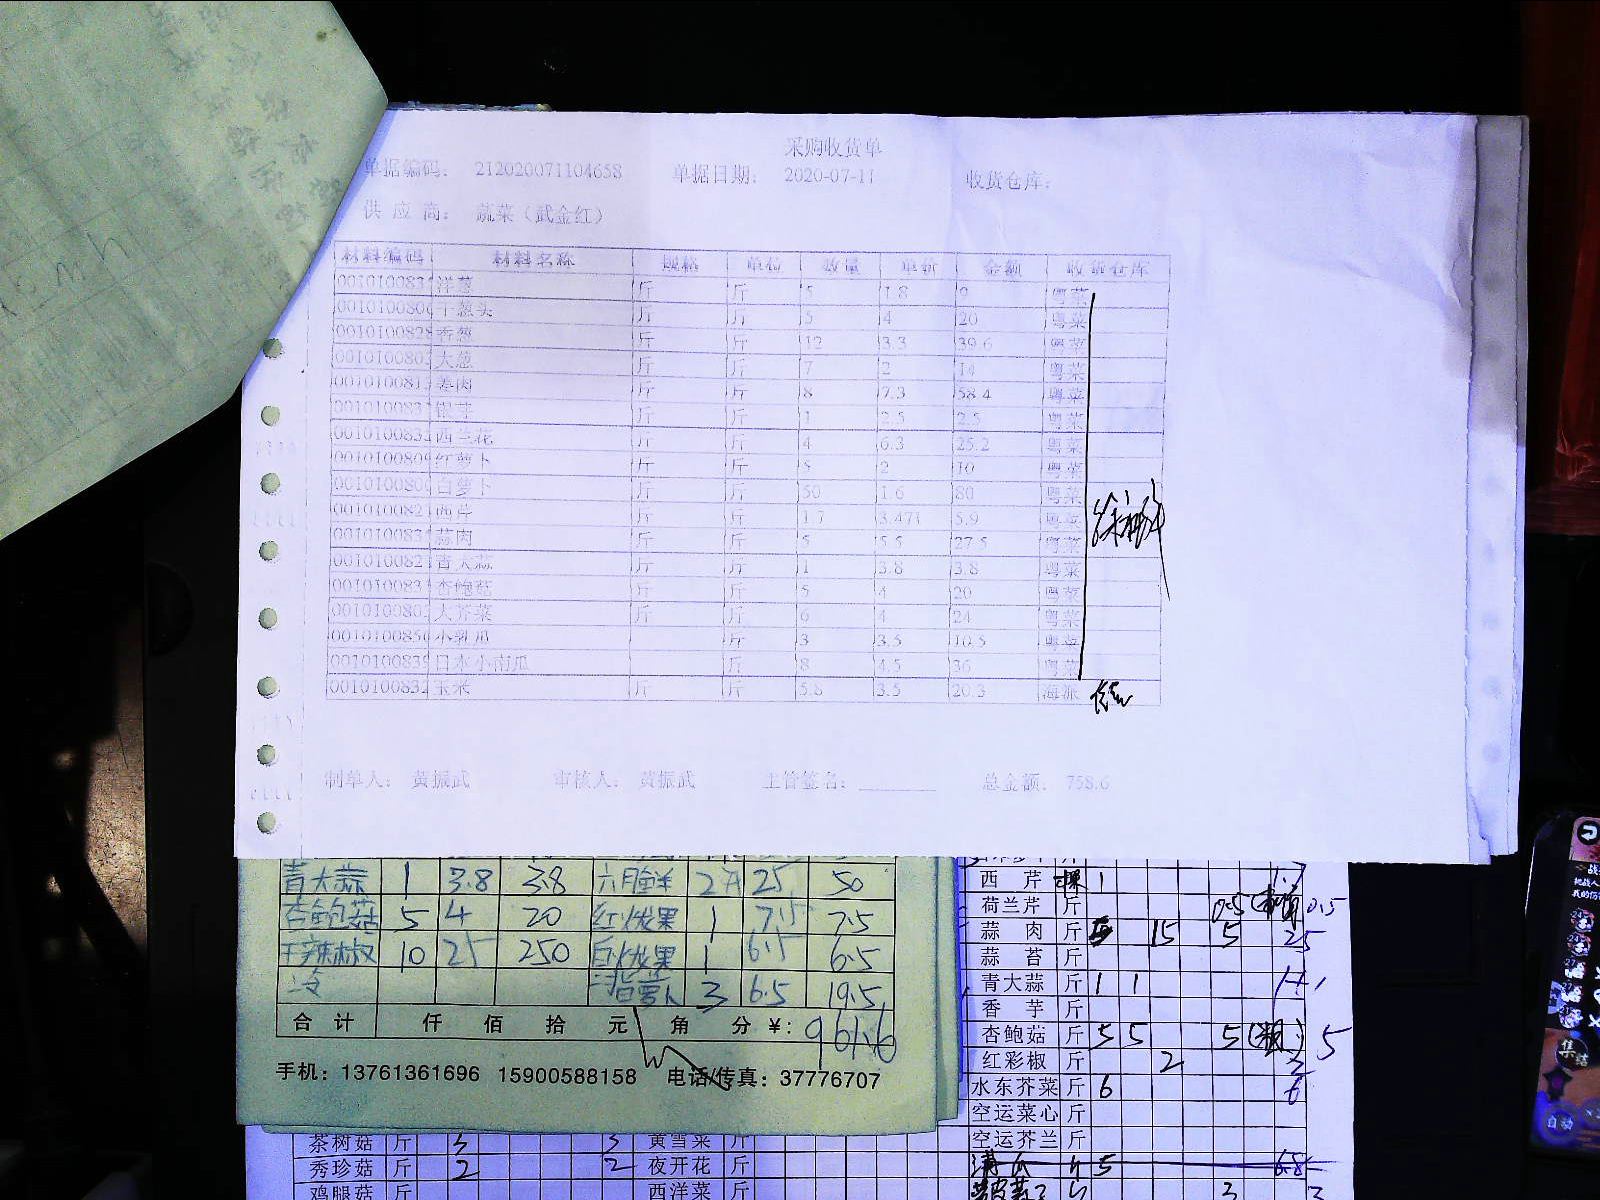 采购收货单
单据编码： 212020071104658 单据日期： 2020-07-11 收货仓库：
供应商： 蔬菜（武金红）
材料编码 材料名称 规格 单位 数量 单价 金额 收货仓库
001010083 洋葱 斤 斤 5 1.8 9 粤菜
001010080 干葱头 斤 斤 5 4 20 粤菜
001010082 香葱 斤 斤 12 3.3 39.6 粤菜
001010080 大葱 斤 斤 7 2 14 粤菜
001010081 姜肉 斤 斤 8 7.3 58.4 粤菜
001010083 银芽 斤 斤 1 2.5 2.5 粤菜
001010083 西兰花 斤 斤 4 6.3 25.2 粤菜
001010080 红萝卜 斤 斤 5 2 10 粤菜
001010080 白萝卜 斤 斤 50 1.6 80 粤菜
001010082 西芹 斤 斤 1.7 3.471 5.9 粤菜
001010083 蒜肉 斤 斤 5 5.5 27.5 粤菜
001010082 青大蒜 斤 斤 1 3.8 3.8 粤菜
001010083 杏鲍菇 斤 斤 5 4 20 粤菜
001010080 大芥菜 斤 斤 6 4 24 粤菜
001010085 小乳瓜 斤 3 3.5 10.5 粤菜
001010083 日本小南瓜 斤 8 4.5 36 粤菜
001010083 玉米 斤 斤 5.8 3.5 20.3 海派
制单人： 黄振武 审核人： 黄振武 主管签名： 总金额： 758.6
青大蒜 1 3.8 3.8 六月鲜 2 25 50
杏鲍菇 5 4 20 红火龙果 1 7.5 7.5
干辣椒 10 25 250 白火龙果 1 6.5 6.5
冷 3 6.5 19.5
合计 仟 佰 拾 元 角 分 ¥: 961.6
手机：13761361696 15900588158 电话/传真：37776707
西芹 1 1.7
荷兰芹 斤 0.5 0.5
蒜肉 斤 5 15 5 25
蒜苔 斤
青大蒜 斤 1 1 1+1
香芋 斤
杏鲍菇 斤 5 5 5 5
红彩椒 斤 2 2
水东芥菜 斤 6 6
空运菜心 斤
空运芥兰 斤
5 6.8
3 3
茶树菇 斤 5 5 黄雪菜 斤
秀珍菇 斤 2 2 夜开花 斤
鸡腿菇 斤 西洋菜 斤
集结
自动